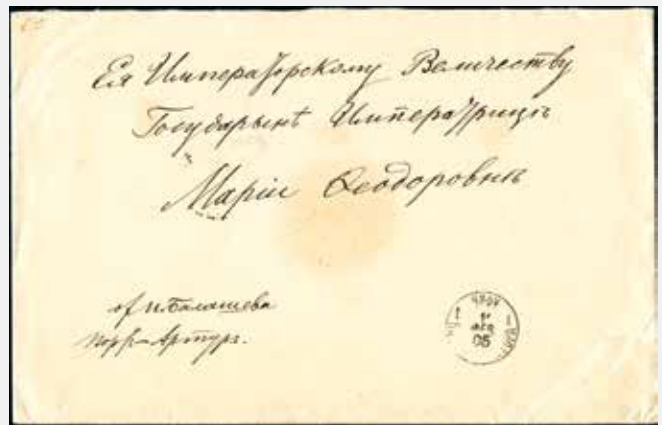 Ея Императорскому Величеству
Государынѣ Императрицѣ
Маріи Ѳеодоровнѣ
от И. Балашева
Порт-Артуръ.
1
ФЕВ
05